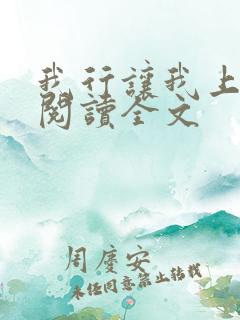 我行讓我上
閱讀全文
周慶安
未經同意禁止轉載